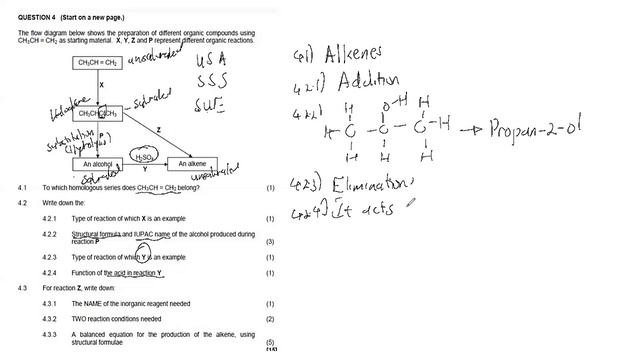 QUESTION 4 (Start on a new page.)
The flow diagram below shows the preparation of different organic compounds using
CH₃CH = CH₂ as starting material. X, Y, Z and P represent different organic reactions.
CH₃CH = CH₂
unsaturated
X
USA
SSS
SUE
CH₃CHCℓCH₃
saturated
substitution
(hydrolysis)
P
Z
An alcohol
H₂SO₄
Y
An alkene
saturated
unsaturated
4.1 To which homologous series does CH₃CH = CH₂ belong? (1)
4.2 Write down the:
4.2.1 Type of reaction of which X is an example (1)
4.2.2 Structural formula and IUPAC name of the alcohol produced during
reaction P (3)
4.2.3 Type of reaction of which Y is an example (1)
4.2.4 Function of the acid in reaction Y (1)
4.3 For reaction Z, write down:
4.3.1 The NAME of the inorganic reagent needed (1)
4.3.2 TWO reaction conditions needed (2)
4.3.3 A balanced equation for the production of the alkene, using
structural formulae (5)
[15]
4.1) Alkenes
4.2.1) Addition
4.2.2)
H O-H H
H-C-C-C-H → Propan-2-ol
H H H
4.2.3) Elimination
4.2.4) It acts